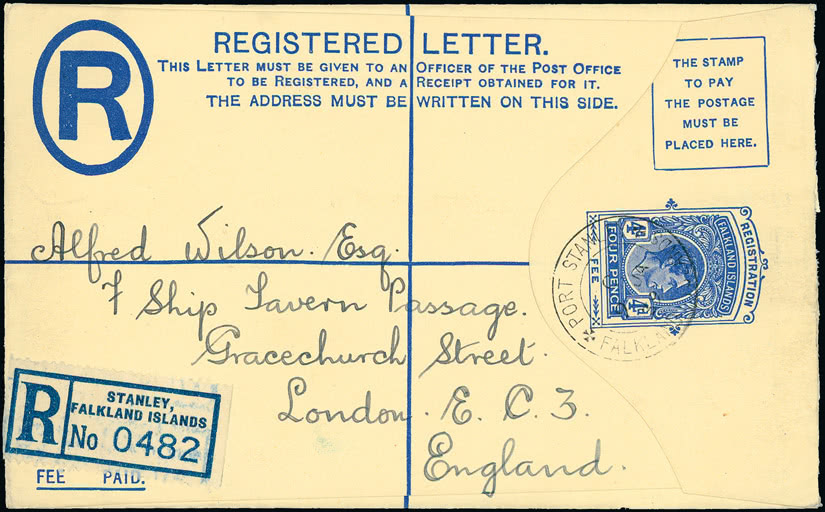 REGISTERED LETTER.
THIS LETTER MUST BE GIVEN TO AN OFFICER OF THE POST OFFICE
TO BE REGISTERED, AND A RECEIPT OBTAINED FOR IT.
THE ADDRESS MUST BE WRITTEN ON THIS SIDE.
R
THE STAMP
TO PAY
THE POSTAGE
MUST BE
PLACED HERE.
Alfred Wilson. Esq.
7 Ship Tavern Passage.
Gracechurch Street.
London. E. C. 3.
England.
REGISTRATION
FALKLAND ISLANDS
4D
4D
FOUR PENCE
FEE
PORT STAN
FALKLA
R
STANLEY,
FALKLAND ISLANDS
No 0482
FEE PAID.